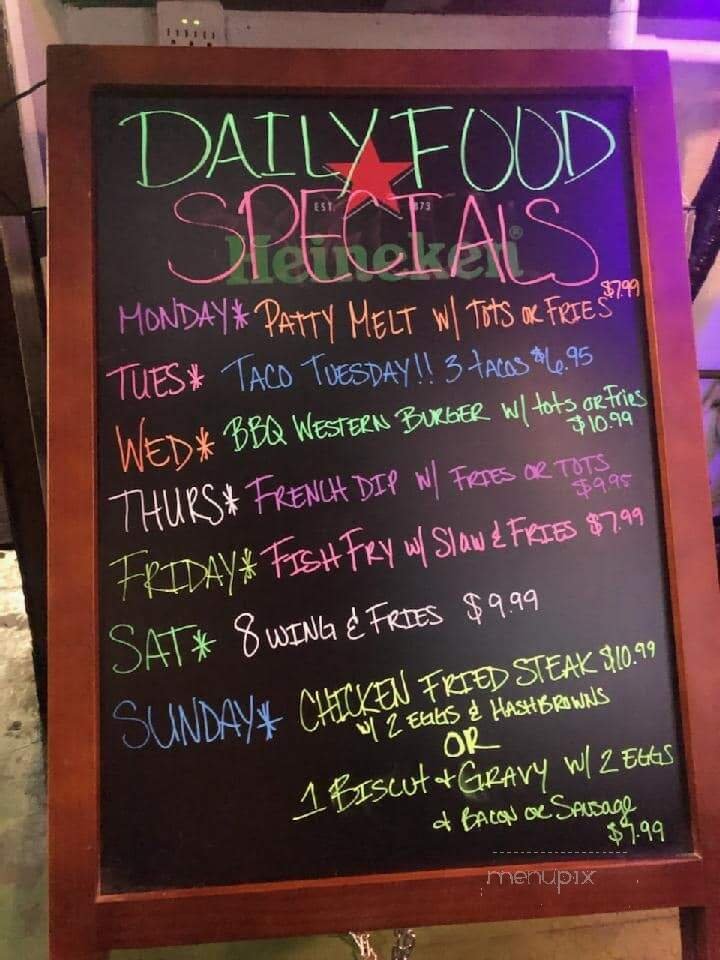 DAILY FOOD
EST. 1873
SPECIALS
Heineken®
MONDAY* PATTY MELT W/ TOTS OR FRIES $7.99
TUES* TACO TUESDAY!! 3 TACOS $6.95
WED* BBQ WESTERN BURGER W/ tots OR Fries
$10.99
THURS* FRENCH DIP W/ FRIES OR TOTS
$9.95
FRIDAY* FISH FRY W/ Slaw & FRIES $7.99
SAT* 8 WING & FRIES $9.99
SUNDAY* CHICKEN FRIED STEAK $10.99
W/ 2 EGGS & HASHBROWNS
OR
1 BISCUT + GRAVY W/ 2 EGGS
+ BACON OR SAUSAGE
$7.99
menupix